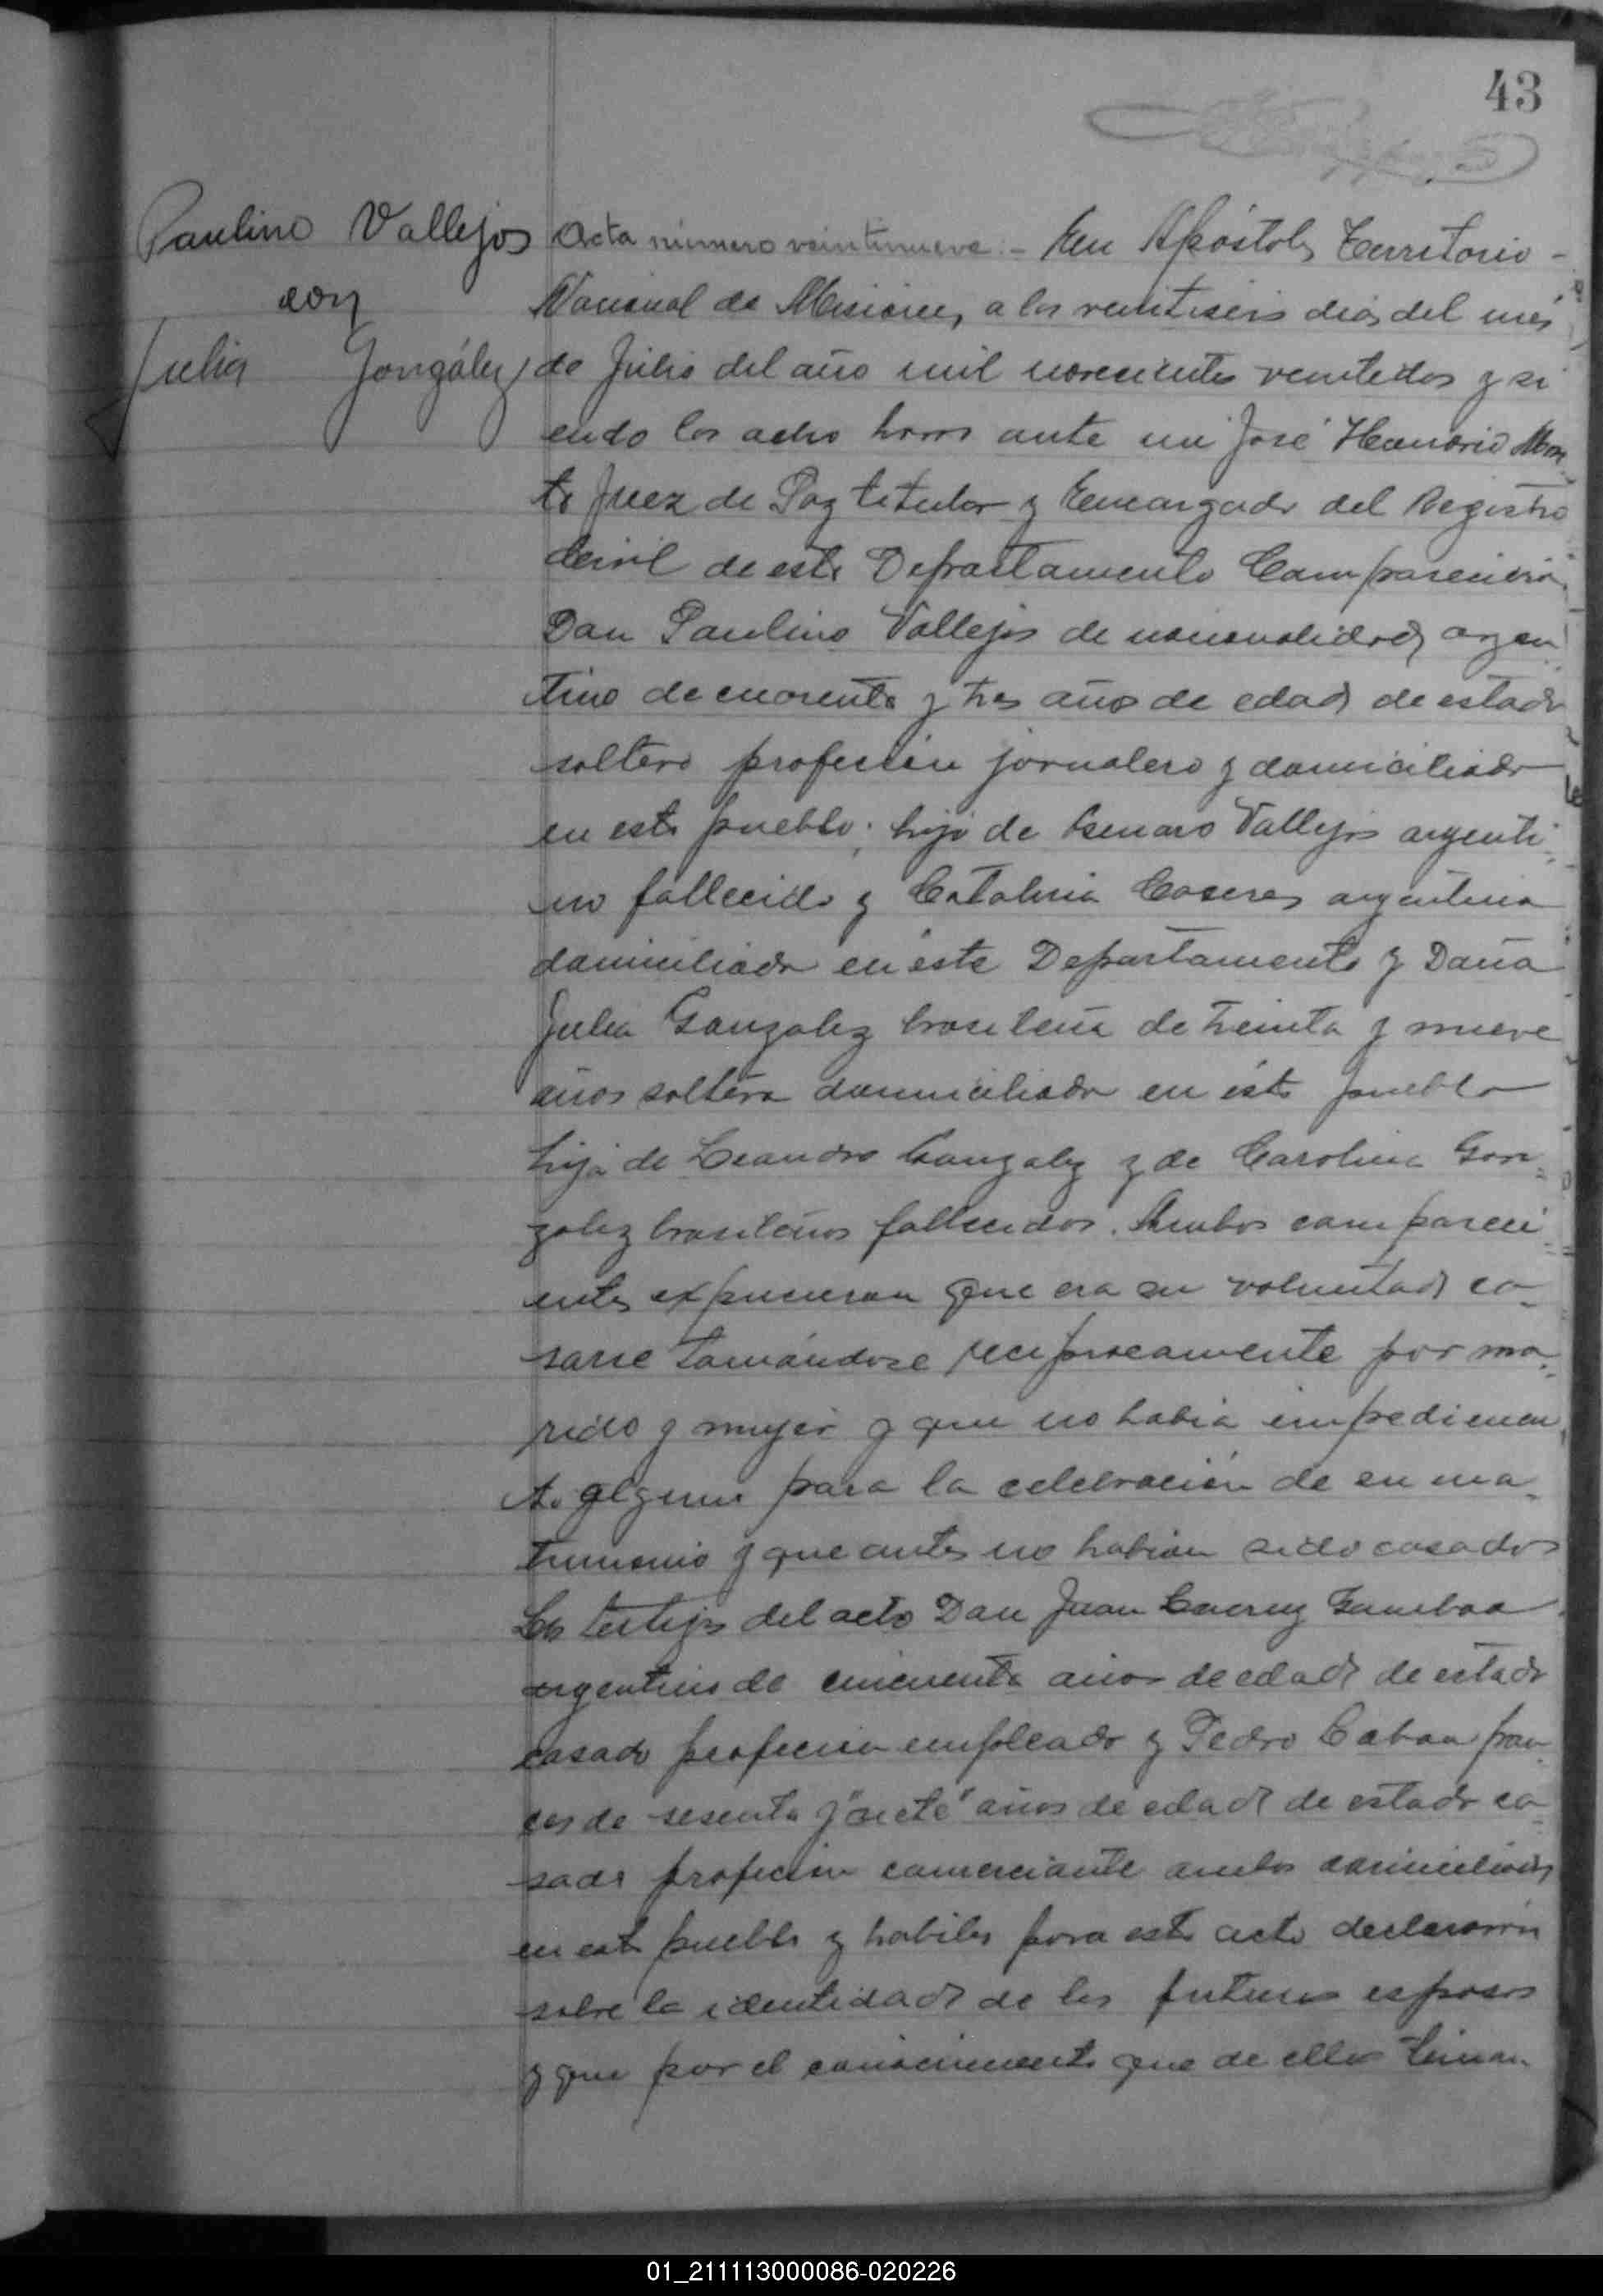 43
Paulino Vallejos
con
Julia Gongález
Acta número veintinueve:- En Apóstoles Territorio -
Nacional de Misiones, a los veintiseis dias del mes
de Julio del año mil novecientos veintedos y si
endo las ocho horas ante mi José Honorio
to Juez de Paz titular y Encargado del Registro
Civil de este Departamento Comparecieron
Don Paulino Vallejos de nacionalidad argen
tino de cuarenta y tres años de edad de estado
soltero profesión jornalero y domiciliado
en este pueblo; hijo de Genaro Vallejos argenti-
no fallecido y Catalina Caseres argentina
domiciliada en este Departamento y Doña
Julia Gonzalez brasileña de treinta y nueve
años soltera domiciliada en este pueblo
hija de Leandro Gonzalez y de Carolina Gon-
zalez brasileños fallecidos. Ambos compareci-
entes expusieron que era su voluntad ca-
sarse tomándose reciprocamente por ma-
rido y mujer y que no habia impedimen
to alguno para la celebración de su ma-
trimonio y que antes no habian sido casados
Los testigos del acto Don Juan Gamboa
argentino de cincuenta años de edad de estado
casado profecion empleado y Pedro fran-
ces de sesenta y "siete" años de edad de estado ca-
sado profecion comerciante ambos domiciliados
en este pueblo y habiles para este acto declararon
sobre la identidad de los futuros esposos
y que por el conocimiento que de ellos tenian
01_211113000086-020226